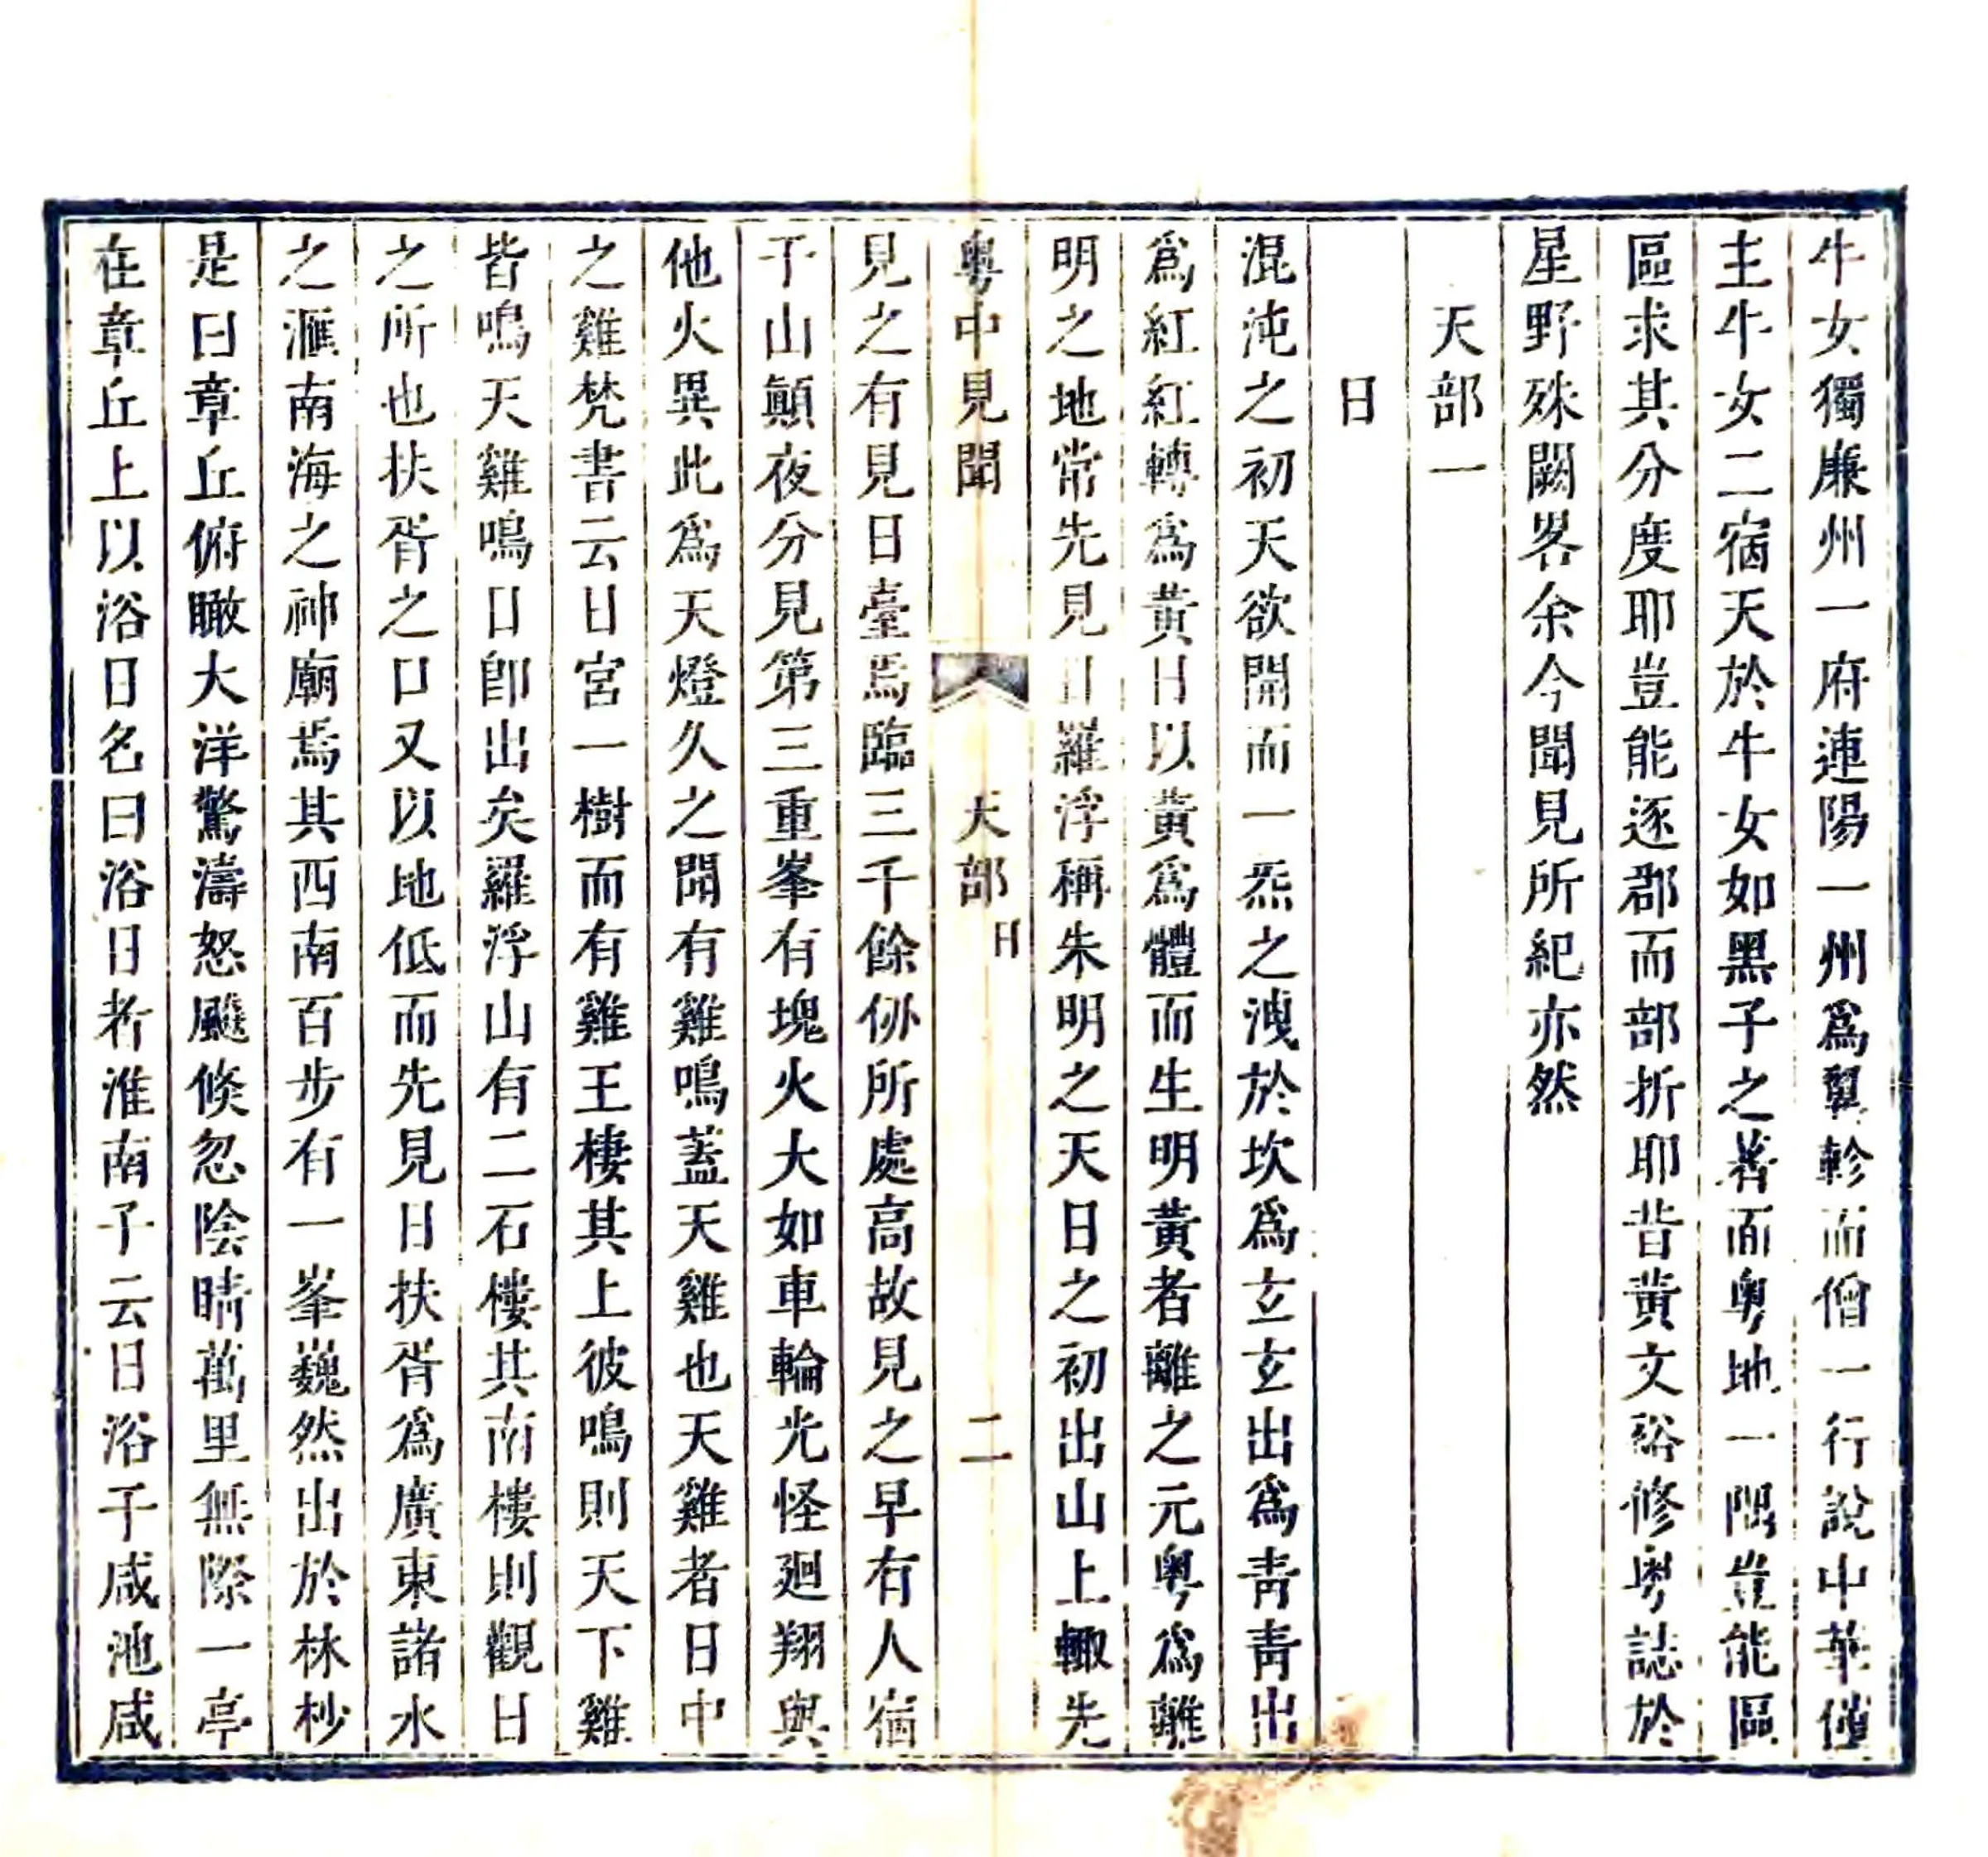 牛女獨廉州一府連陽一州爲翼軫而僧一行說中華僅
主牛女二宿天於牛女如黑子之著面粤地一隅豈能區
區求其分度耶豈能逐郡而部折耶昔黃文裕修粤誌於
星野殊闕畧余今聞見所紀亦然
天部一
日
混沌之初天欲開而一炁之洩於坎爲玄玄出爲靑靑出
爲紅紅轉爲黃日以黃爲體而生明黃者離之元粤爲離
明之地常先見日羅浮稱朱明之天日之初出山上輙先
粤中見聞 天部 日 二
見之有見日臺焉臨三千餘仞所處高故見之早有人宿
于山顚夜分見第三重峯有塊火大如車輪光怪廻翔與
他火異此爲天燈久之聞有雞鳴蓋天雞也天雞者日中
之雞梵書云日宮一樹而有雞王棲其上彼鳴則天下雞
皆鳴天雞鳴日卽出矣羅浮山有二石樓其南樓則觀日
之所也扶胥之口又以地低而先見日扶胥爲廣東諸水
之滙南海之神廟焉其西南百步有一峯巍然出於林杪
是曰章丘俯瞰大洋驚濤怒飈倐忽陰晴萬里無際一亭
在章丘上以浴日名曰浴日者淮南子云日浴于咸池咸